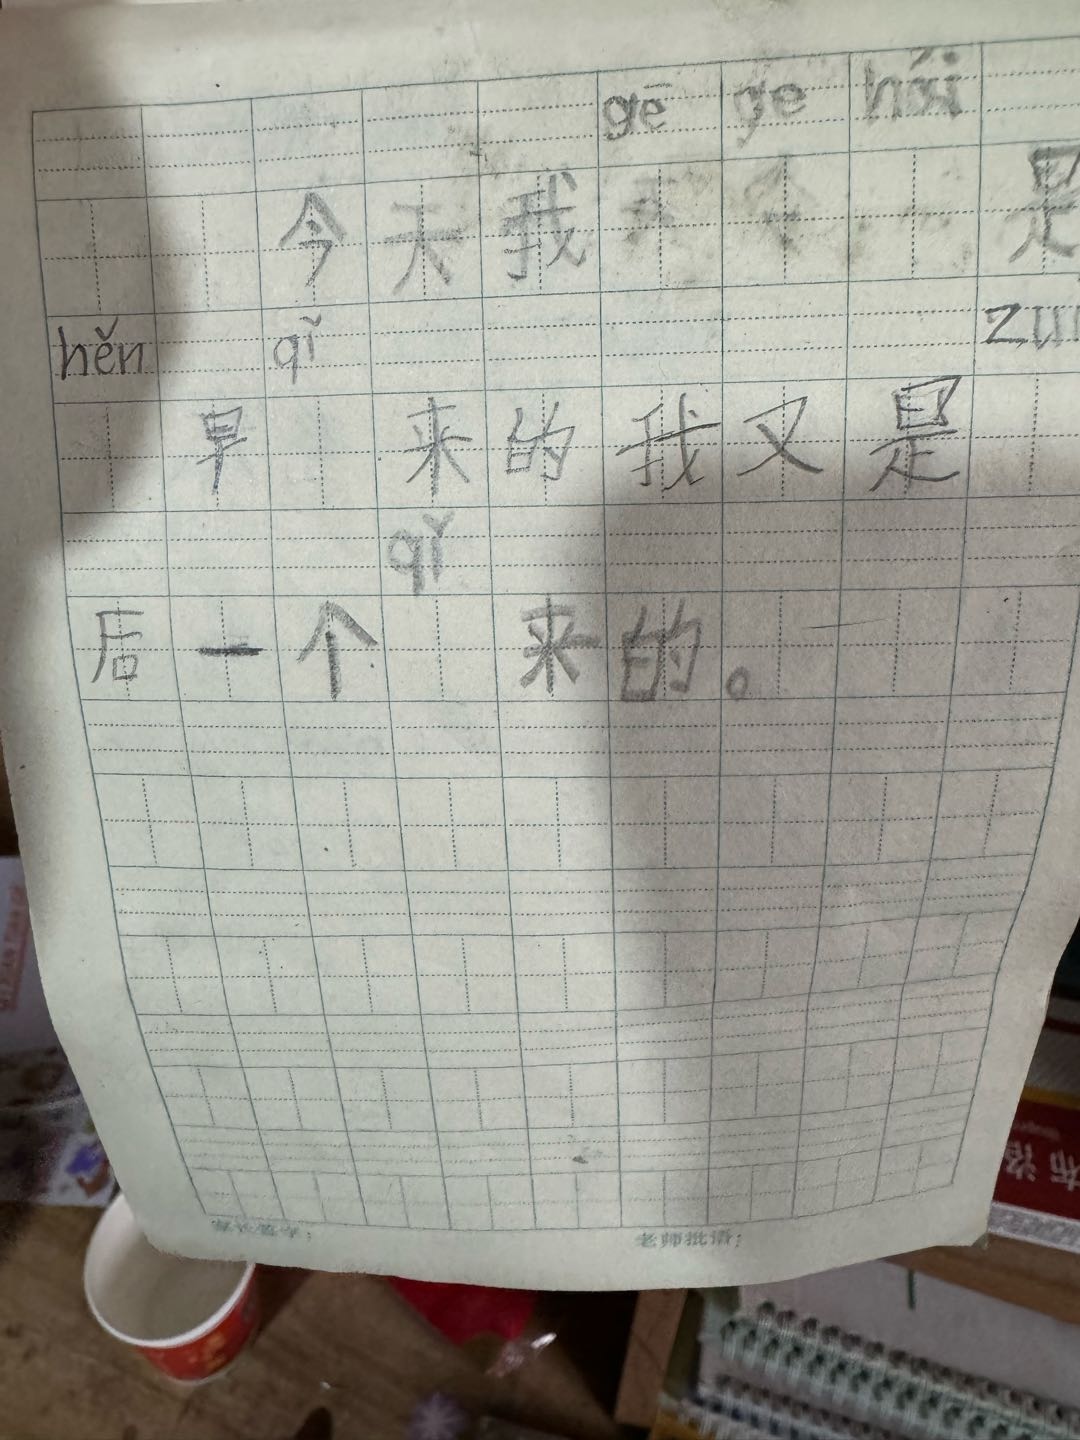 gē ge hái
今天我 是
hěn qǐ
早 来的我又是
qǐ
后一个 来的。